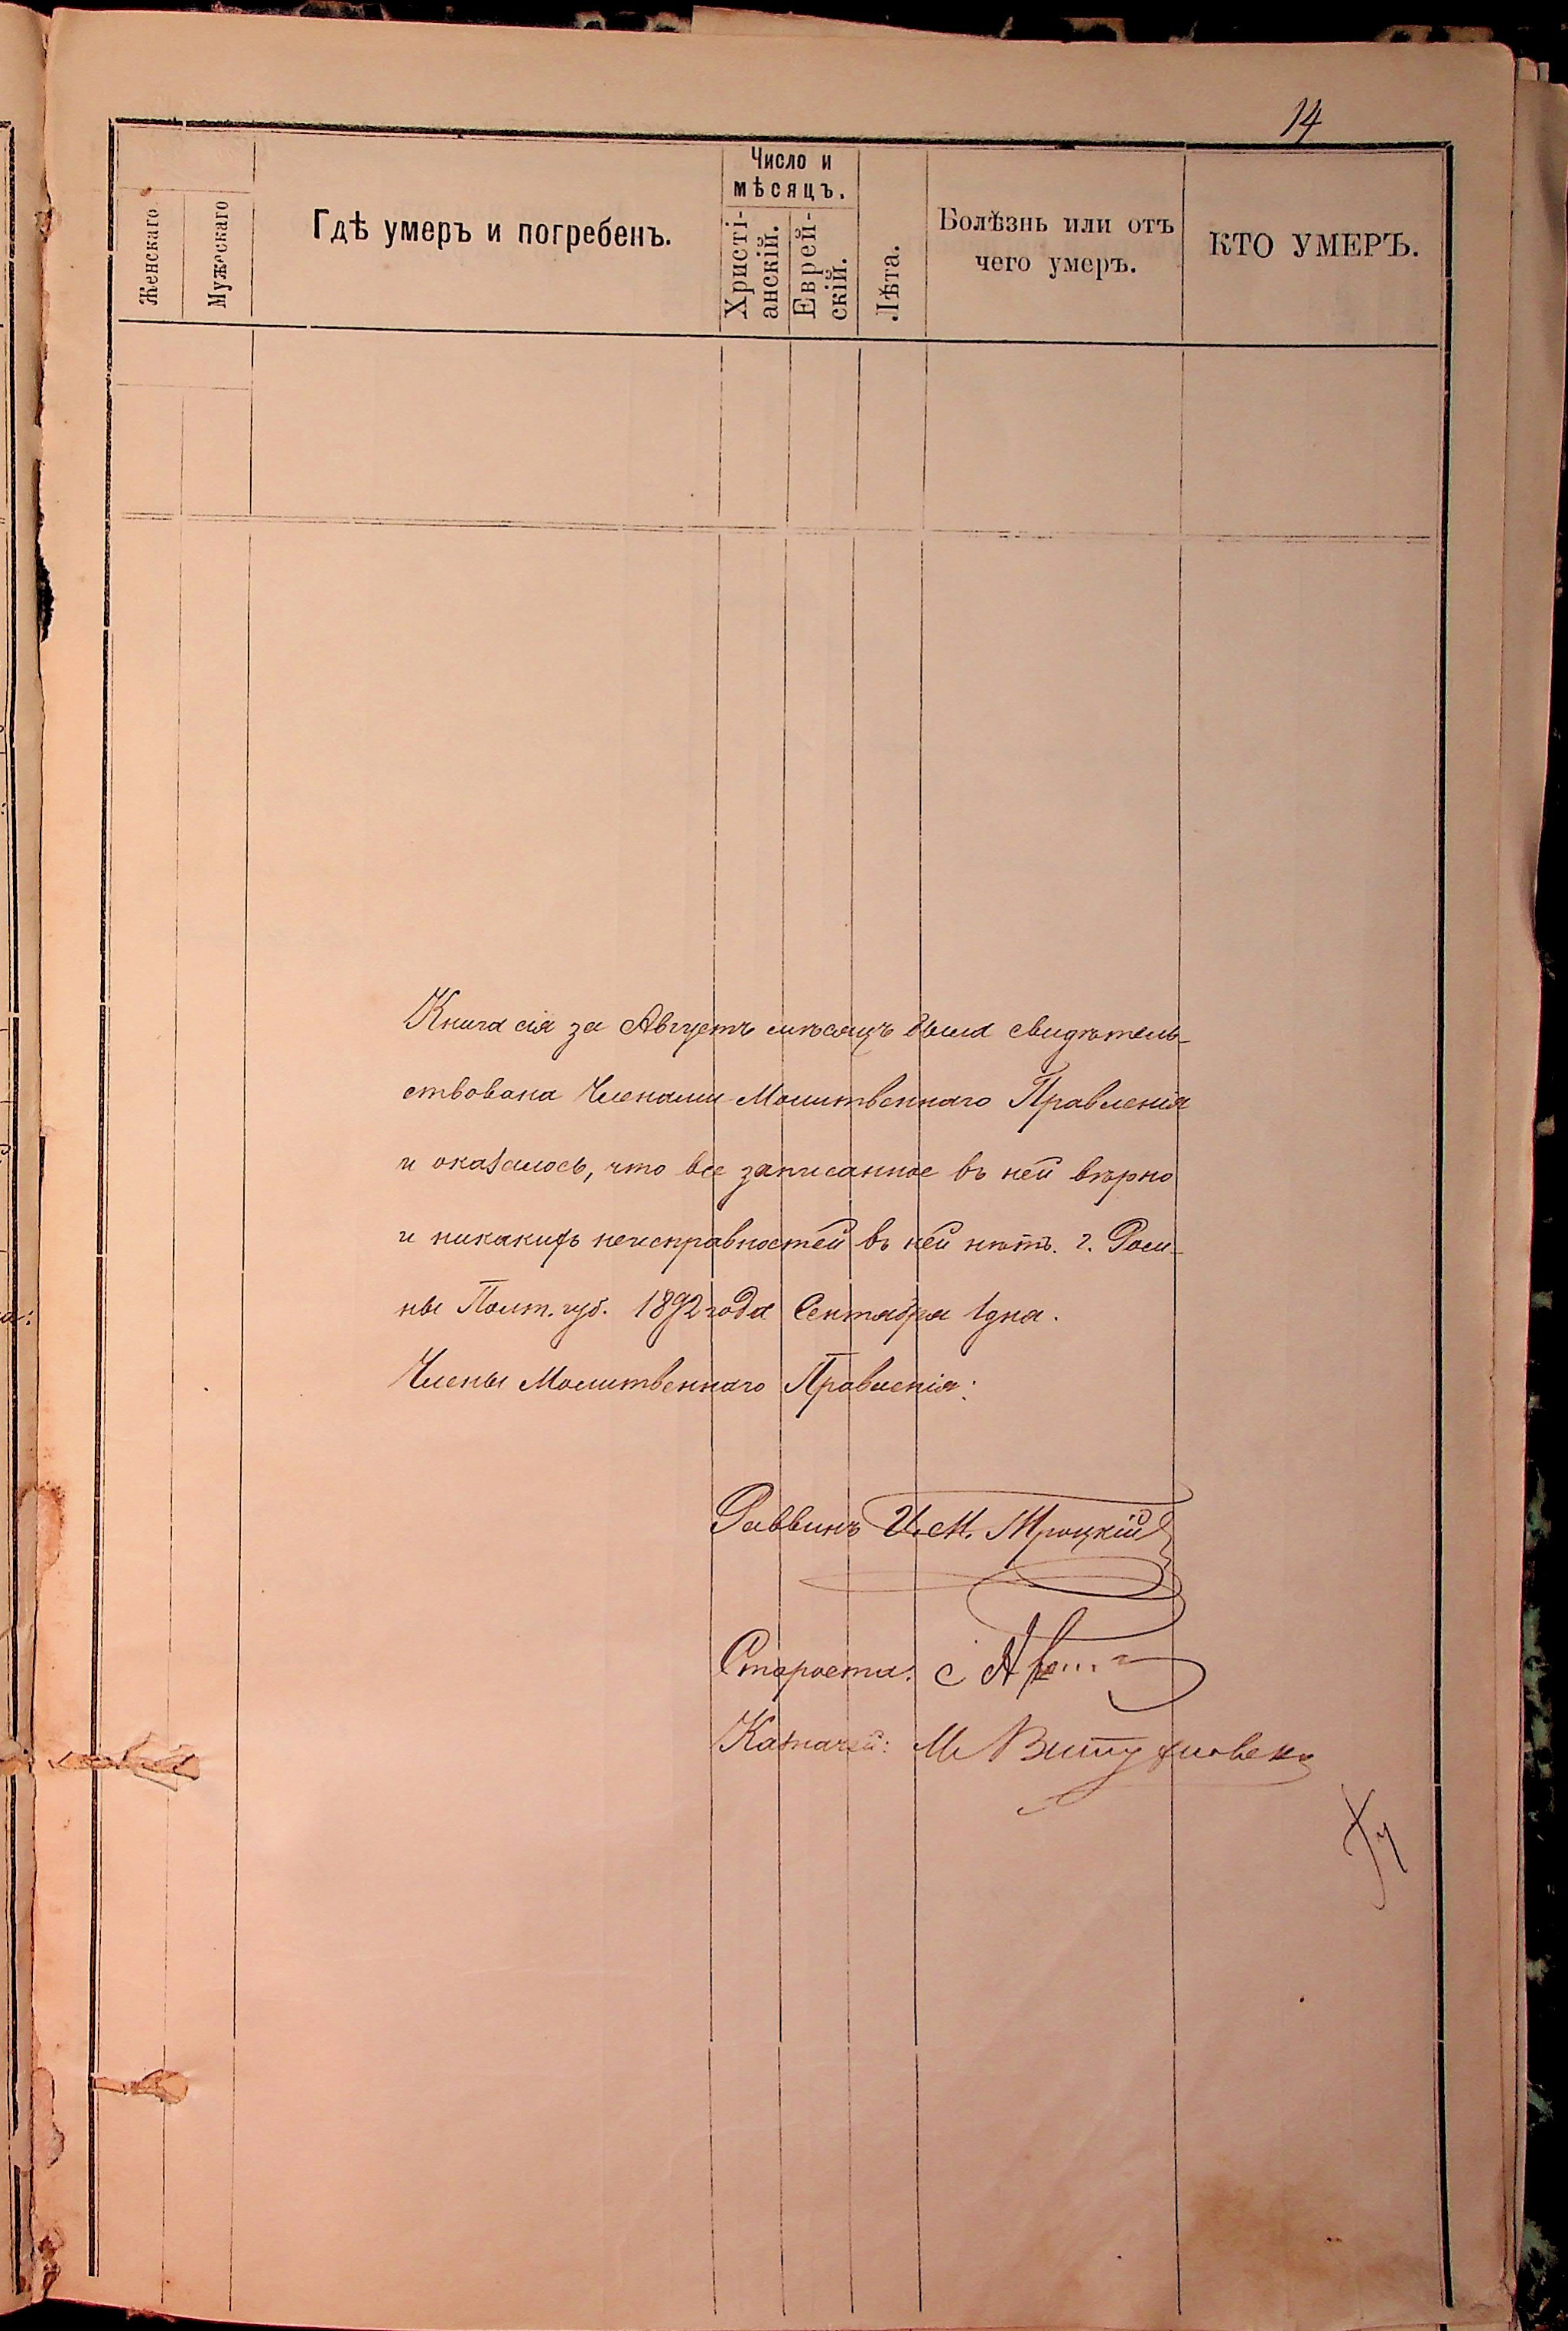 14
Женскаго
Мужескаго
Гдѣ умеръ и погребенъ.
Число и
мѣсяцъ.
Христі-
анскій.
Еврей-
скій.
Лѣта.
Болѣзнь или отъ
чего умеръ.
КТО УМЕРЪ.
Книга сія за Августъ мѣсяцъ была свидѣтель-
ствована Членами Молитвеннаго Правленія
и оказалось, что все записанное въ ней вѣрно
и никакихъ неисправностей въ ней нѣтъ. г. Ром-
ны Полт. губ. 1892 года Сентября 1 дня.
Члены Молитвеннаго Правленія:
Раввинъ И. М. Троцкій
Староста:
Казначей: М